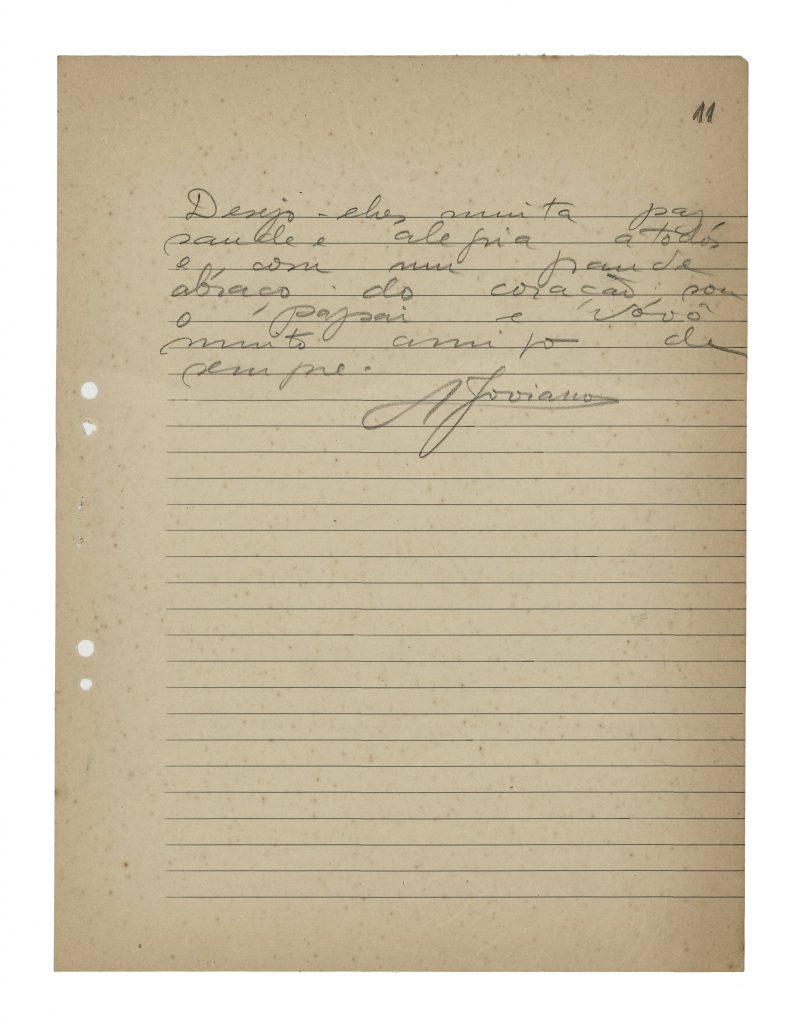 11
Desejo-lhes muita paz
saude e alegria a todos
e com um grande
abraço do coração sou
o papai e Vôvô
muito amigo de
sempre.
A Joviano